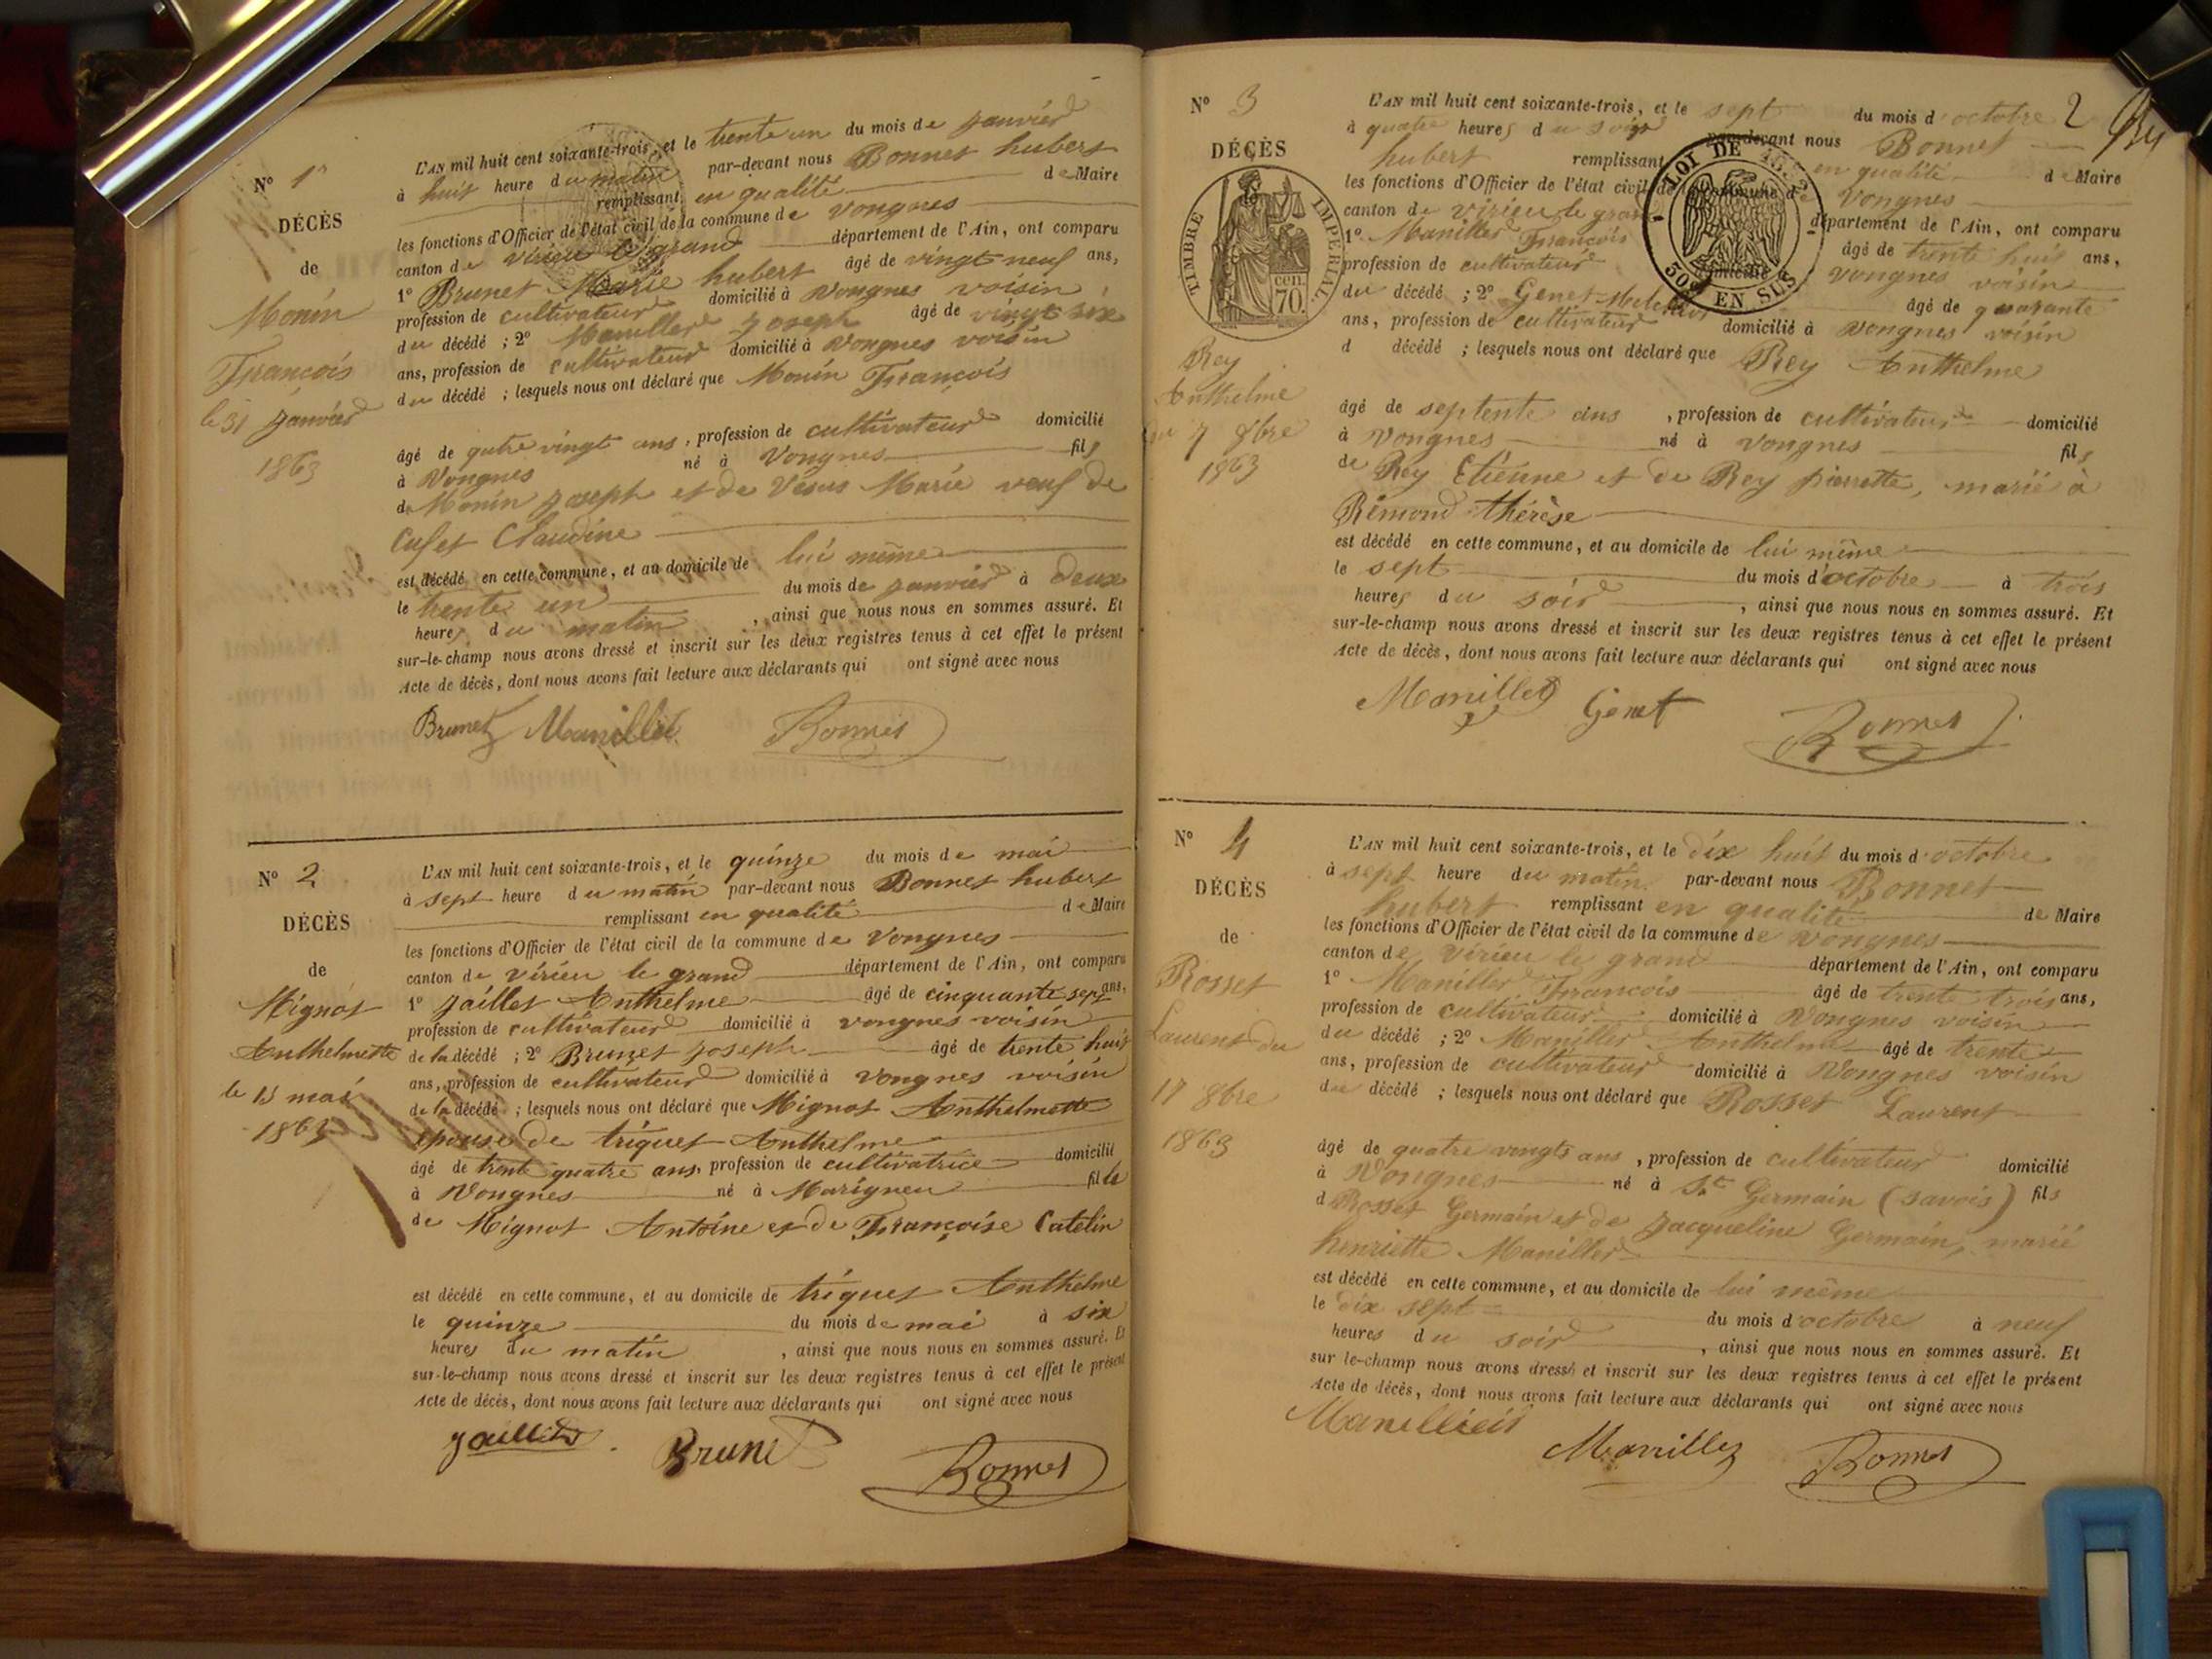 N° 1er
DÉCÈS
de
Monin
François
le 31 janvier
1863
L'AN mil huit cent soixante-trois, et le trente un du mois de janvier
à huit heure du matin par-devant nous Bonnet hubert
remplissant en qualité de Maire
les fonctions d'Officier de l'état civil de la commune de Vongnes
canton de virieu le grand département de l'Ain, ont comparu
1° Brunet Marie hubert âgé de vingt neuf ans,
profession de cultivateur domicilié à Vongnes voisin
du décédé ; 2° Manillier Joseph âgé de vingt six
ans, profession de cultivateur domicilié à Vongnes voisin
du décédé ; lesquels nous ont déclaré que Monin François
âgé de qutre vingt ans, profession de cultivateur domicilié
à Vongnes né à Vongnes fils
de Monin Joseph et de Marie veuf de
Claudine
est décédé en cette commune, et au domicile de lui même
le trente un du mois de janvier à deux
heures du matin, ainsi que nous nous en sommes assuré. Et
sur-le-champ nous avons dressé et inscrit sur les deux registres tenus à cet effet le présent
Acte de décès, dont nous avons fait lecture aux déclarants qui ont signé avec nous
Brunet Manillier Bonnet
N° 2
DÉCÈS
de
Mignot
Anthelmette
le 15 mai
1863
L'AN mil huit cent soixante-trois, et le quinze du mois de mai
à sept heure du matin par-devant nous Bonnet hubert
remplissant en qualité de Maire
les fonctions d'Officier de l'état civil de la commune de Vongnes
canton de virieu le grand département de l'Ain, ont comparu
1° Jaillet Anthelme âgé de cinquante sept ans,
profession de cultivateur domicilié à vongnes voisin
de la décédé ; 2° Brunet Joseph âgé de trente huit
ans, profession de cultivateur domicilié à Vongnes voisin
de la décédé ; lesquels nous ont déclaré que Mignot Anthelmette
épouse de triquet Anthelme
âgé de trente quatre ans, profession de cultivatrice domicilié
à Vongnes né à Marignieu fille
de Mignot Antoine et de Françoise Catelin
est décédé en cette commune, et au domicile de triquet Anthelme
le quinze du mois de mai à six
heures du matin, ainsi que nous nous en sommes assuré. Et
sur-le-champ nous avons dressé et inscrit sur les deux registres tenus à cet effet le présent
Acte de décès, dont nous avons fait lecture aux déclarants qui ont signé avec nous
Jaillet Brunet Bonnet
2
N° 3
DÉCÈS
TIMBRE IMPERIAL
70 cen
LOI DE
EN SUS
Rey
Anthelme
du 7 8bre
1863
L'AN mil huit cent soixante-trois, et le sept du mois d'octobre
à quatre heures du soir par-devant nous Bonnet
hubert remplissant en qualité de Maire
les fonctions d'Officier de l'état civil de la commune de Vongnes
canton de virieu le grand département de l'Ain, ont comparu
1° Manillier François âgé de trente huit ans,
profession de cultivateur domicilié à vongnes voisin
du décédé ; 2° Genet âgé de quarante
ans, profession de cultivateur domicilié à Vongnes voisin
d décédé ; lesquels nous ont déclaré que Rey Anthelme
âgé de septente ans, profession de cultivateur domicilié
à Vongnes né à Vongnes fils
de Rey Etienne et de Rey pierrette, marié à
Rémond thérèse
est décédé en cette commune, et au domicile de lui même
le sept du mois d'octobre à trois
heures du soir, ainsi que nous nous en sommes assuré. Et
sur-le-champ nous avons dressé et inscrit sur les deux registres tenus à cet effet le présent
Acte de décès, dont nous avons fait lecture aux déclarants qui ont signé avec nous
Manillier Genet Bonnet
N° 4
DÉCÈS
de
Rosset
Laurent du
17 8bre
1863
L'AN mil huit cent soixante-trois, et le dix huit du mois d'octobre
à sept heure du matin par-devant nous Bonnet
hubert remplissant en qualité de Maire
les fonctions d'Officier de l'état civil de la commune de Vongnes
canton de Virieu le grand département de l'Ain, ont comparu
1° Manillier François âgé de trente trois ans,
profession de cultivateur domicilié à Vongnes voisin
du décédé ; 2° Manillier Anthelme âgé de trente
ans, profession de cultivateur domicilié à Vongnes voisin
du décédé ; lesquels nous ont déclaré que Rosset Laurent
âgé de quatre vingts ans, profession de cultivateur domicilié
à Vongnes né à St Germain (savois) fils
d Rosset Germain et de Jacqueline Germain, marié
henriette Manillier
est décédé en cette commune, et au domicile de lui même
le dix sept du mois d'octobre à neuf
heures du soir, ainsi que nous nous en sommes assuré. Et
sur le-champ nous avons dressé et inscrit sur les deux registres tenus à cet effet le présent
Acte de décès, dont nous avons fait lecture aux déclarants qui ont signé avec nous
Manillier
Manillier Bonnet